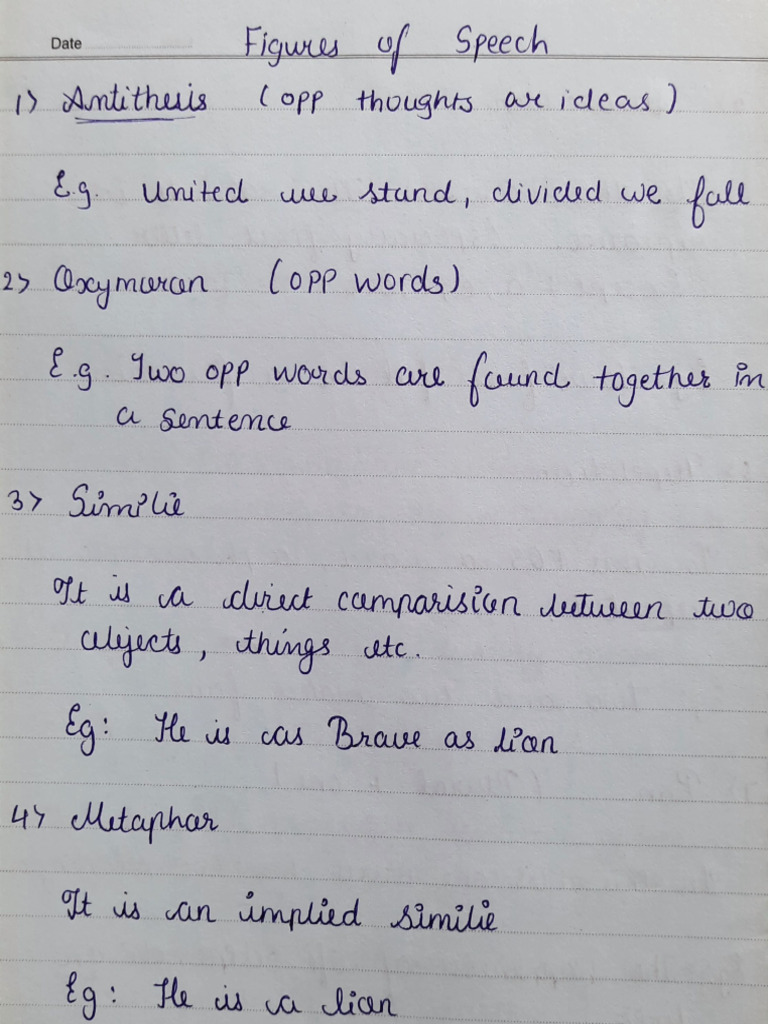 Date
Figures of Speech
1> Antithesis (opp thoughts or ideas)
E.g. United we stand, divided we fall
2> Oxymoron (opp words)
E.g. Two opp words are found together in
a sentence
3> Similie
It is a direct comparision between two
objects, things etc.
Eg: He is as Brave as lion
4> Metaphor
It is an implied similie
Eg: He is a lion